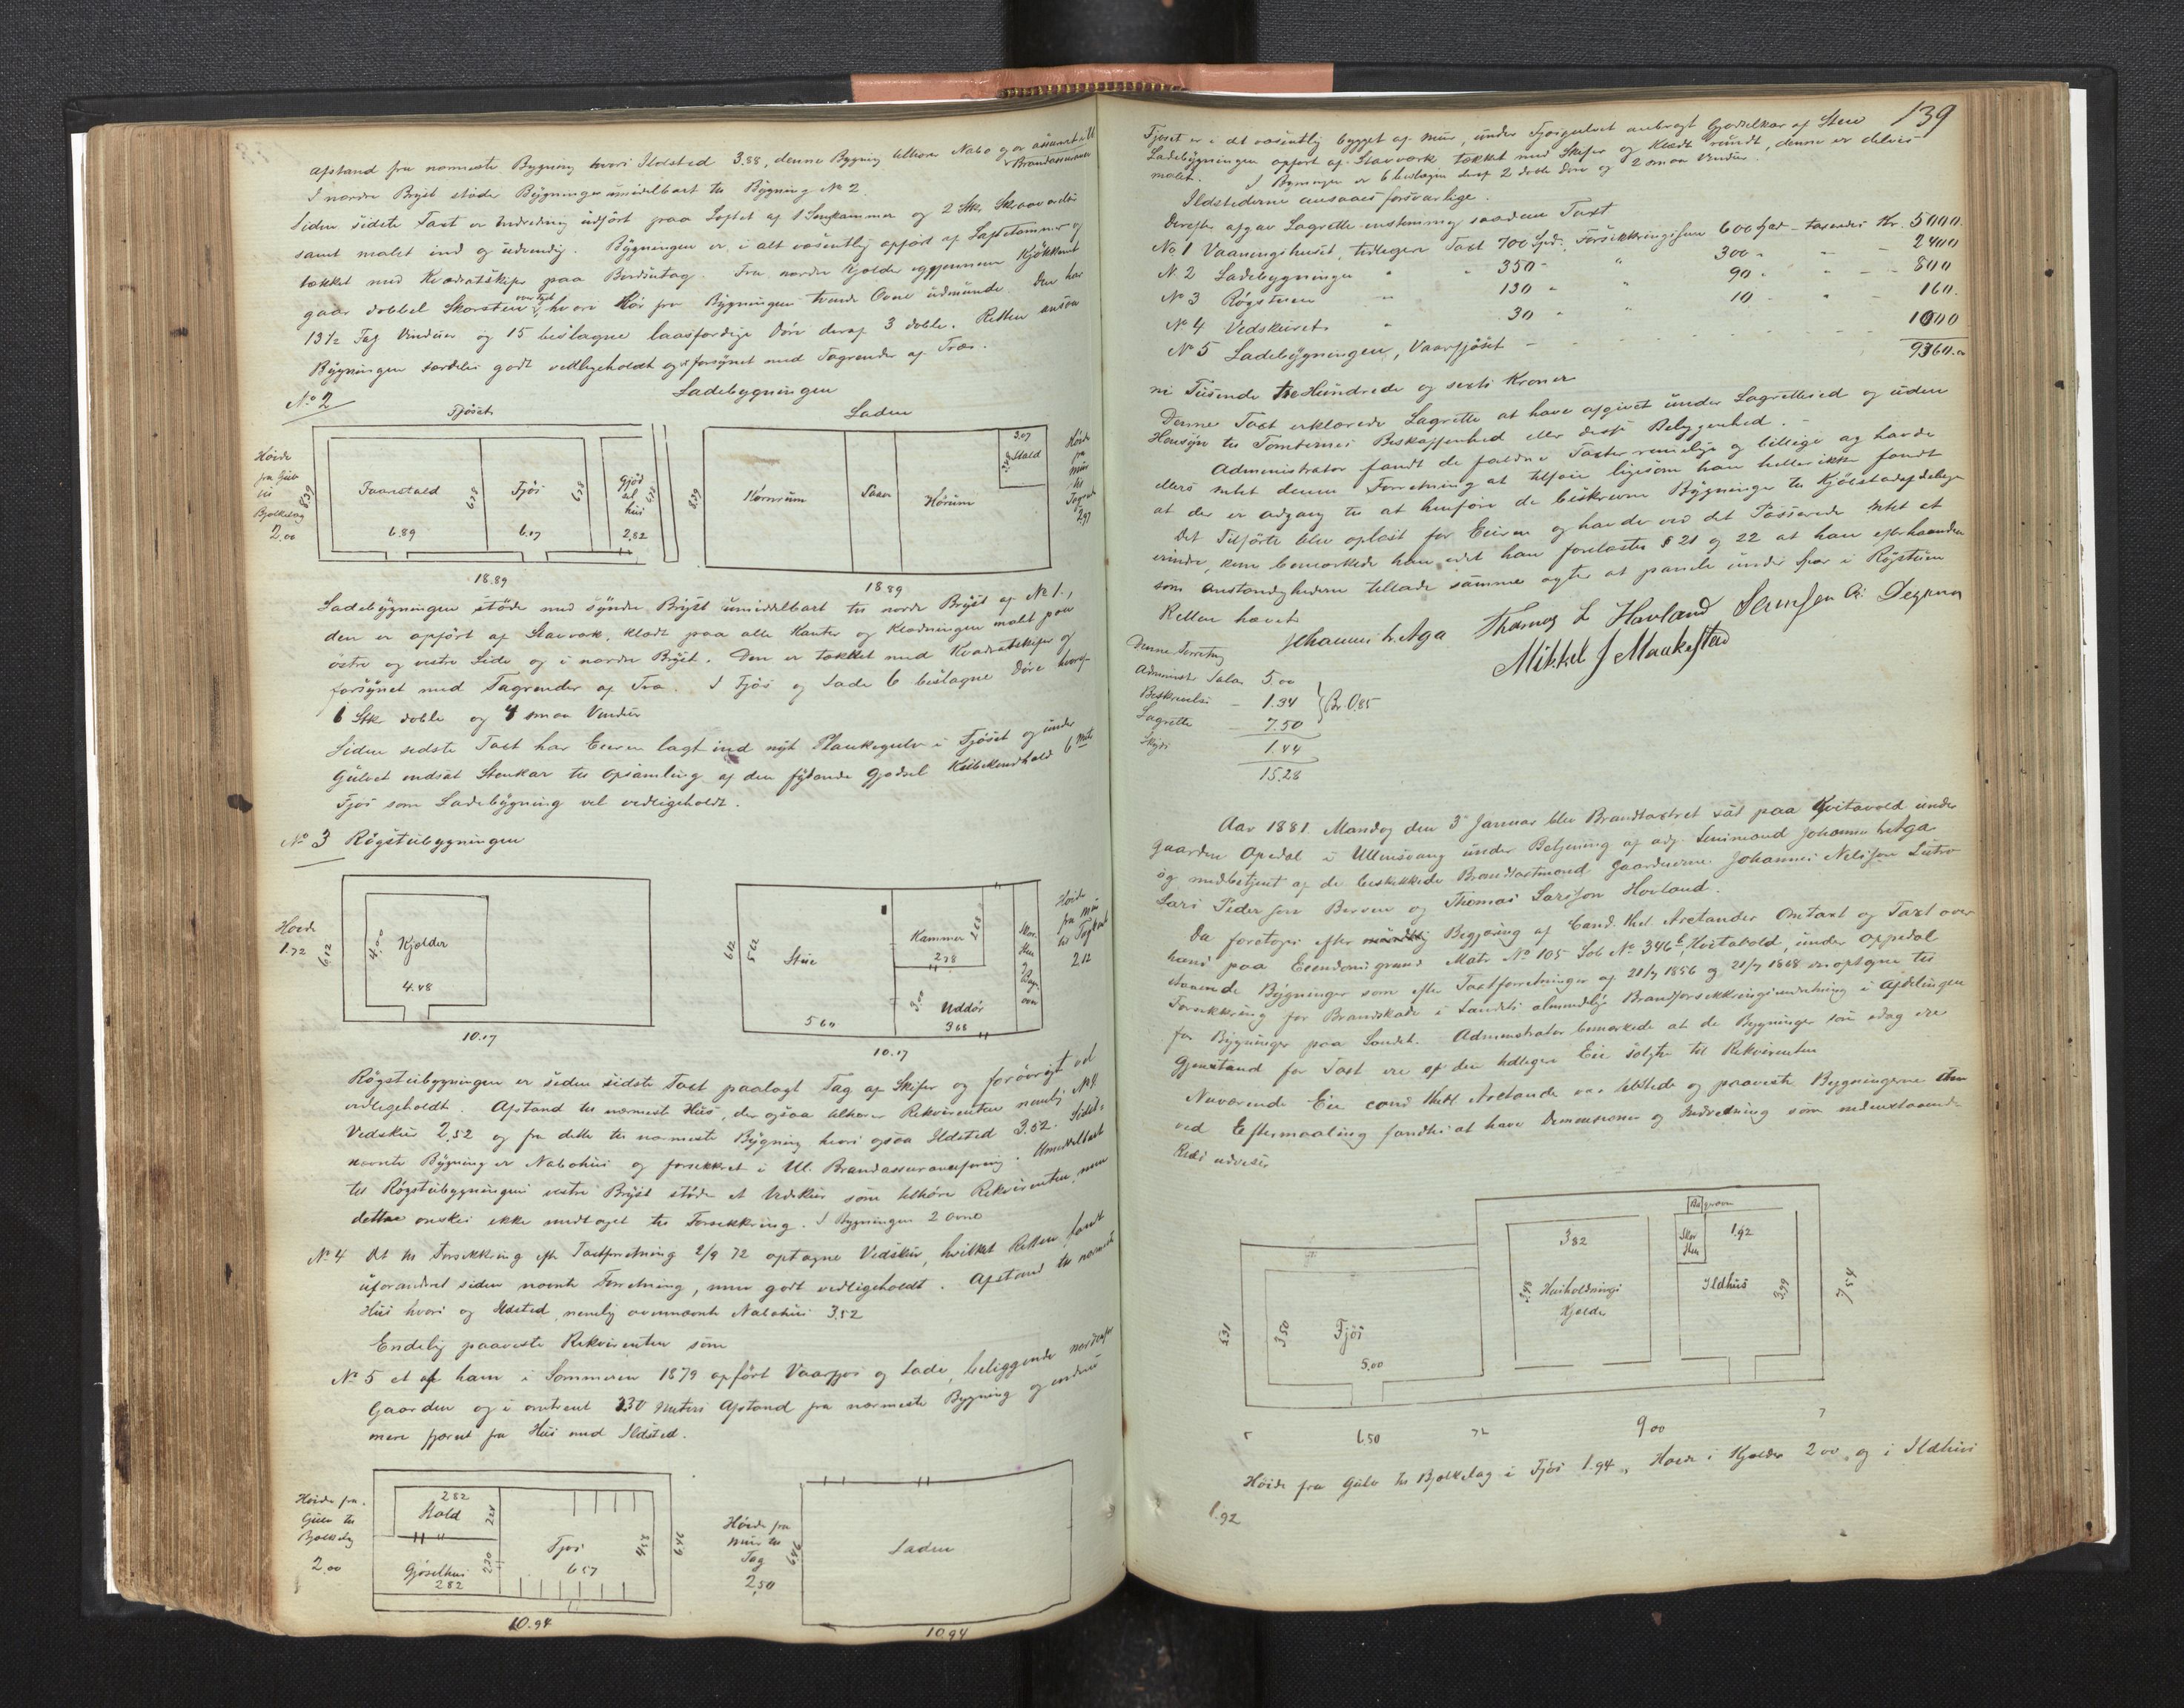 Afstand fra nærmeste Bygning hvori Ildsted 3.88, denne Bygning tilhører Nabo og er assureret i Ull
Brandassurance
I nordre Bryst støder Bygningen umiddelbart til Bygning No 2.
Siden sidste Taxt er Indredning udført paa Loftet af 1 Sengkammer og 2 Stk Skraavarder
samt malet ind og udvendig. Bygningen er i alt væsentlig opført af Laftetømmer og
tækket med Kvadratskifer paa Bordsutag. Fra nordre Kjælder igjennem Kjøkkenet
gaar dobbel Skorsten over Taget, hvori Rør fra Bygningen tvende Ovne udmunde. Den har
13½ Fag Vinduer og 15 beslagne laasfærdige Døre deraf 3 doble. Retten ansaa
Bygningen særdeles godt vedligeholdt og er forsynet med Tagrender af Træ.
No 2
Ladebygningen
Fjøset
Laden
Høide
fra Gulv
til
Bjelkelag
2.00
8.39
Faarestald
6.89
6.28
Fjøs
6.17
6.28
Gjød
sel
hus
2.82
18.89
8.39
Kornrum
Laave
Hørum
3.07
Stald
18.89
Høide
fra
Mur
til
Tagrend
2.97
Ladebygningen støder med syndre Bryst umiddelbart til nordre Bryst af No 1.,
den er opført af Stavværk, klædt paa alle Kanter og Klædningen malt paa
østre og vestre Side og i nordre Bryst. Den er tækket med Kvadratskifer og
forsynet med Tagrender af Træ. I Fjøs og Lade 6 beslagne Døre hvoraf
1 Stk doble og 4 smaa Vinduer
Siden sidste Taxt har Eieren lagt ind nyt Plankegulv i Fjøset og under
Gulvet indsat Stenkar til Opsamling af den flydende Gjødsel Kubikindhold 6 Mete
Fjøs som Ladebygning vel vedligeholdt.
No 3 Røgstubygningen
Høide
1.72
6.12
4.00
Kjælder
4.48
10.17
6.12
5.62
Stue
5.60
Kammer
2.78
2.68
Uddør
3.68
3.00
Skor-
sten
Bage
ovn
10.17
Høide
fra Mur
til Tagbord
2.12
Røgstubygningen er siden sidste Taxt paalagt Tag af Skifer og forøvrigt vel
vedligeholdt. Afstand til nærmeste Hus, der ogsaa tilhører Rekvirenten nemlig No 4.
Vedskur 2.52 og fra dette til nærmeste Bygning hvori ogsaa Ildsted 3.52. Sidst-
nævnte Bygning er Nabohus og forsikkret i Ull. Brandassuranceforening. Umiddelbart
til Røgstubygningens vestre Bryst støder et Vedskur som tilhører Rekvirenten, men
dette ønskes ikke medtaget til Forsikkring. I Bygningen 2 Ovne
No 4 Det til Forsikkring efter Taxtforretning 2/9 72 optagne Vedskur, hvilket Retten fandt
uforandret siden nævnte Forretning, men godt vedligeholdt. Afstand til nærmeste
Hus hvori og Ildsted, nemlig ovennævnte Nabohus 3.52
Endelig paaviste Rekvirenten som
No 5 et af ham i Sommeren 1879 opført Vaarfjøs og Lade, beliggende nordenfor
Gaarden og i omtrent 230 Meters Afstand fra nærmeste Bygning og endnu
mere fjernt fra Hus med Ildsted.
Høide fra
Gulv til
Bjelkelag
2.00
2.82
Stald
2.28
Gjøselhus
2.82
2.20
Fjøs
6.57
4.58
6.46
10.94
Høide fra
Mur til
Tag
2.50
6.46
Laden
10.94
139
Fjøset er i det væsentlig bygget af Mur, under Fjøsgulvet anbragt Gjødselkar af Sten
Ladebygningen opført af Stavværk tækket med Skifer og Klædt rundt, denne er delvis
malet. I Bygningen er 6 beslagne deraf 2 doble Døre og 2 smaa Vinduer.
Ildstederne ansaaes forsvarlige.
Derefter afgav Lagrette enstemmig saadan Taxt
No 1 Vaaningshuset, tidligere Taxt 700 Spd. Forsikkringssum 600 Spd - taxeredes Kr. 5000.
N. 2 Ladebygningen " " 350 - " 300 - - - 2400
No 3 Røgstuen - - 130 - " 90 - - - 800
No 4 Vedskuret " 30 - " 10 - - - 160.
No 5 Ladebygningen, Vaarfjøset - - - - 1000
9360.00
ni Tusende tre Hundrede og sexti Kroner
Denne Taxt erklærede Lagrette at have afgivet under Lagrettesed og uden
Hensyn til Tomternes Beskaffenhed eller dessen Beliggenhed. -
Administrator fandt de faldne Taxter rimelige og billige og havde
ellers intet denne Forretning at tilføie ligesom han heller ikke fandt
at der er Adgang til at henføre de beskrevne Bygninger til Kjøbstadafdelingen
Det Tilførte blev oplæst for Eieren og havde ved det Passerede intet at
erindre, kun bemærkede han ved han forelæstes § 21 og 22 at han efterhaanden
som Omstændighederne tillade samme agter at panele under Spær i Røgstuen
Retten hævet
Johannes L. Aga Thomas L Havland
Mikkel J Maakestad
Denne Forretning
Administr Salær 5.00
Beskrivelse - 1.34
Br. 0.85
Lagrette - 7.50
Skyds 1.44
15.28
Aar 1881. Mandag den 3e Januar blev Brandtaxtret sat paa Kvitavold under
Gaarden Opedal i Ullensvang under Betjening af adj. Lensmand Johannes L. Aga
og medbetjent af de beskikkede Brandtaxtmænd Gaardeierne Johannes Nelsson Lutro
Lars Pederson Bersven og Thomas Larsson Hovland.
Da foretoges efter mundtlig Begjæring af Cand. theol. Aretander Omtaxt og Taxt over
hans paa Eiendomsgrund Matr No 105 Løb No 346 b, Kvitavold, under Oppedal
staaende Bygninger som efter Taxtforretninger af 21/7 1856 og 21/7 1868 ere optagne til
Forsikkring for Brandskade i Landets almindelige Brandforsikkringsindretning i Afdelingen
for Bygninger paa Landet. Administrator bemærkede at de Bygninger som idag ere
Gjenstand for Taxt ere af den tidligere Eier solgte til Rekvirenten
Nuværende Eier cand theol Aretander var tilstede og paaviste Bygningerne som
ved Eftermaaling fandtes at have Dimensioner og Indredning som nedenstaaende
Rids udviser
5.31
3.50
Fjøs
5.00
6.50
3.82
3.98
Husholdnings
Kjælder
Skor
sten
1.92
Ildhus
3.99
7.54
9.00
Høide fra Gulv til Bjelkelag i Fjøs 1.94, Høide i Kjælder 2.00 og i Ildhus
1.92